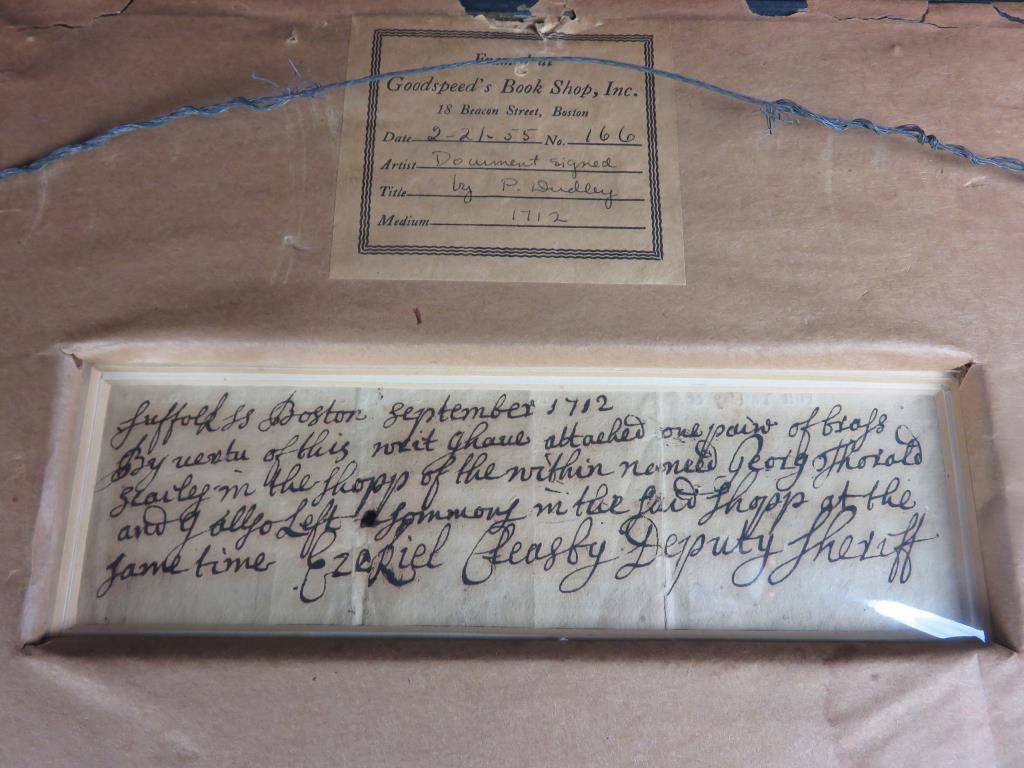 Framed at
Goodspeed's Book Shop, Inc.
18 Beacon Street, Boston
Date 2-21-55 No. 166
Artist Document signed
Title by P. Dudley
Medium 1712
Suffolk ss Boston September 1712
By vertu of this writ I haue attached one paire of brass
scailes in the shopp of the within named Georg Thorald
and I allso Left a sommons in the said shopp at the
same time Ezekiel Cleasby Deputy Sheriff